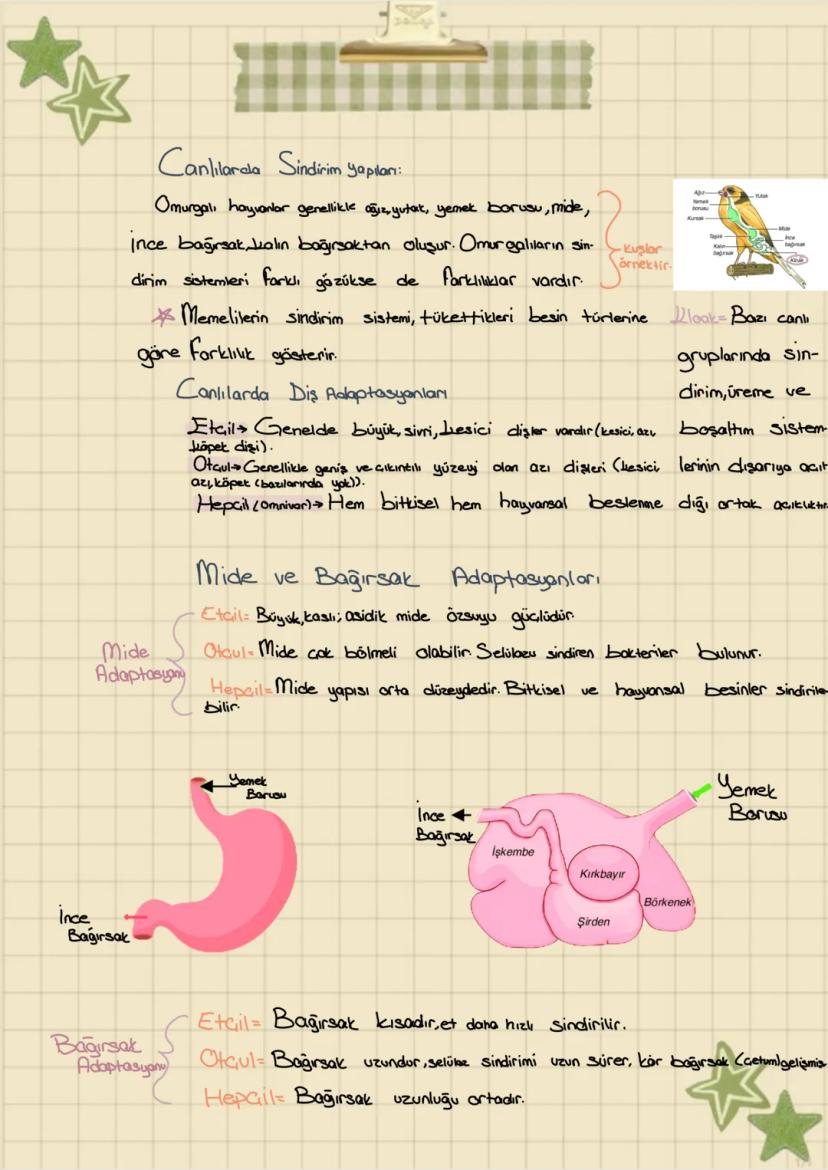 Canlılarda Sindirim Yapıları:
Omurgalı hayvanlar genellikle ağız, yutak, yemek borusu, mide,
ince bağırsak, kalın bağırsaktan oluşur. Omurgalıların sin-
dirim sistemleri farklı gözükse de farklılıklar vardır.
kuşlar
örnektir.
Ağız
Yemek
borusu
Kursak
Taşlık
Kalın
bağırsak
Yutak
Mide
İnce
bağırsak
Kloak
Memelilerin sindirim sistemi, tükettikleri besin türlerine
göre farklılık gösterir.
Kloak= Bazı canlı
gruplarında sin-
dirim, üreme ve
boşaltım sistem-
lerinin dışarıya açıl
dığı ortak açıklıktır.
Canlılarda Diş Adaptasyonları
Etçil→ Genelde büyük, sivri, kesici dişler vardır (kesici, azı,
köpek dişi).
Otçul→ Genellikle geniş ve çıkıntılı yüzeyi olan azı dişleri (kesici
azı, köpek (bazılarında yok)).
Hepçil (omnivor)→ Hem bitkisel hem hayvansal beslenme
Mide ve Bağırsak Adaptasyonları
Mide
Adaptasyonu
Etçil= Büyük, kaslı; asidik mide özsuyu güçlüdür.
Otçul= Mide çok bölmeli olabilir. Selülozu sindiren bakteriler bulunur.
Hepçil= Mide yapısı orta düzeydedir. Bitkisel ve hayvansal besinler sindirile-
bilir.
Yemek
Borusu
İnce
Bağırsak
İnce
Bağırsak
Yemek
Borusu
İşkembe
Kırkbayır
Börkenek
Şirden
Bağırsak
Adaptasyonu
Etçil= Bağırsak kısadır, et daha hızlı sindirilir.
Otçul= Bağırsak uzundur, selüloz sindirimi uzun sürer, kör bağırsak (çetum) gelişmiş
Hepçil= Bağırsak uzunluğu ortadır.